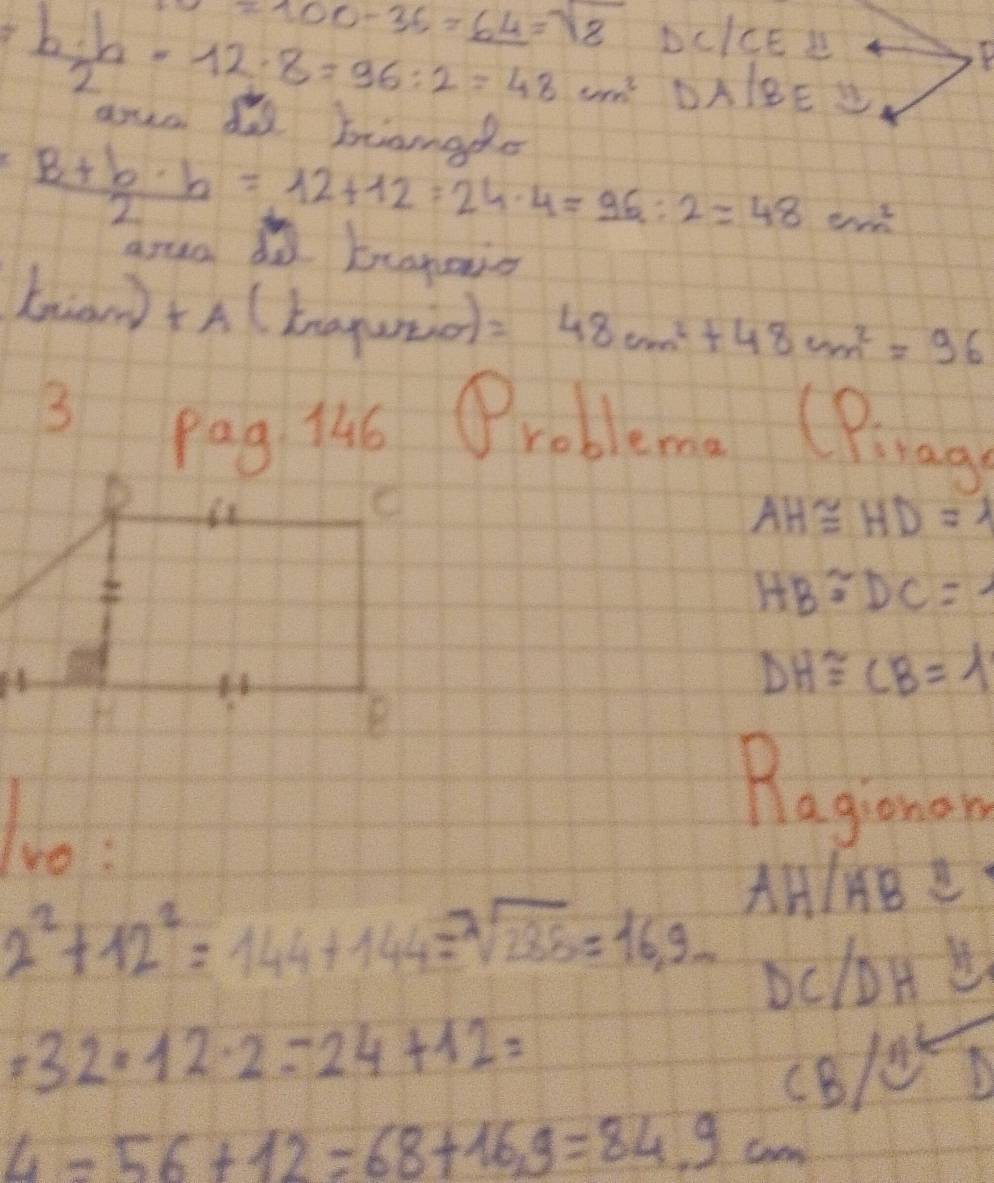 = 100 - 36 = 64 = √8 DC/CE
= b·h/2 = 12·8 = 96:2 = 48 cm² DA/BE
area del triangolo
= B+b·h/2 = 12+12 = 24·4 = 96:2 = 48 cm²
area del trapezio
trian) + A (trapezio) = 48 cm² + 48 cm² = 96
3 pag. 146 Problema (Pitago
D C
AH ≅ HD = 1
HB ≅ DC = 1
DH ≅ CB = 1
H B
Ragionam
lvo:
AH/HB
2² + 12² = 144 + 144 = ²√288 = 16,9
DC/DH
= 32·12·2 = 24 + 12 =
CB/ D
4 = 56 + 12 = 68 + 16,9 = 84,9 cm